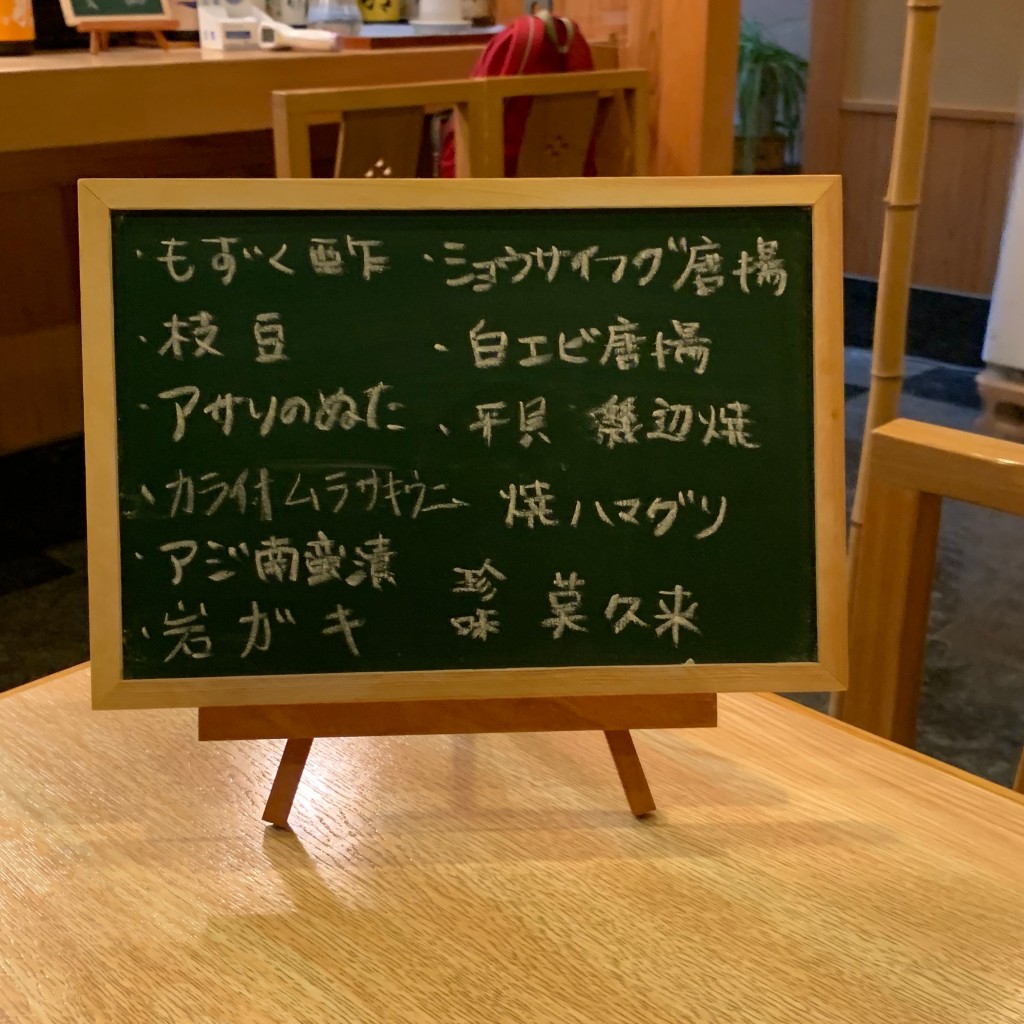 ・もずく酢
・枝豆
・アサリのぬた
・カラ付ムラサキウニ
・アジ南蛮漬
・岩ガキ
・ショウサイフグ唐揚
・白エビ唐揚
・平貝 磯辺焼
焼ハマグリ
珍味 莫久来